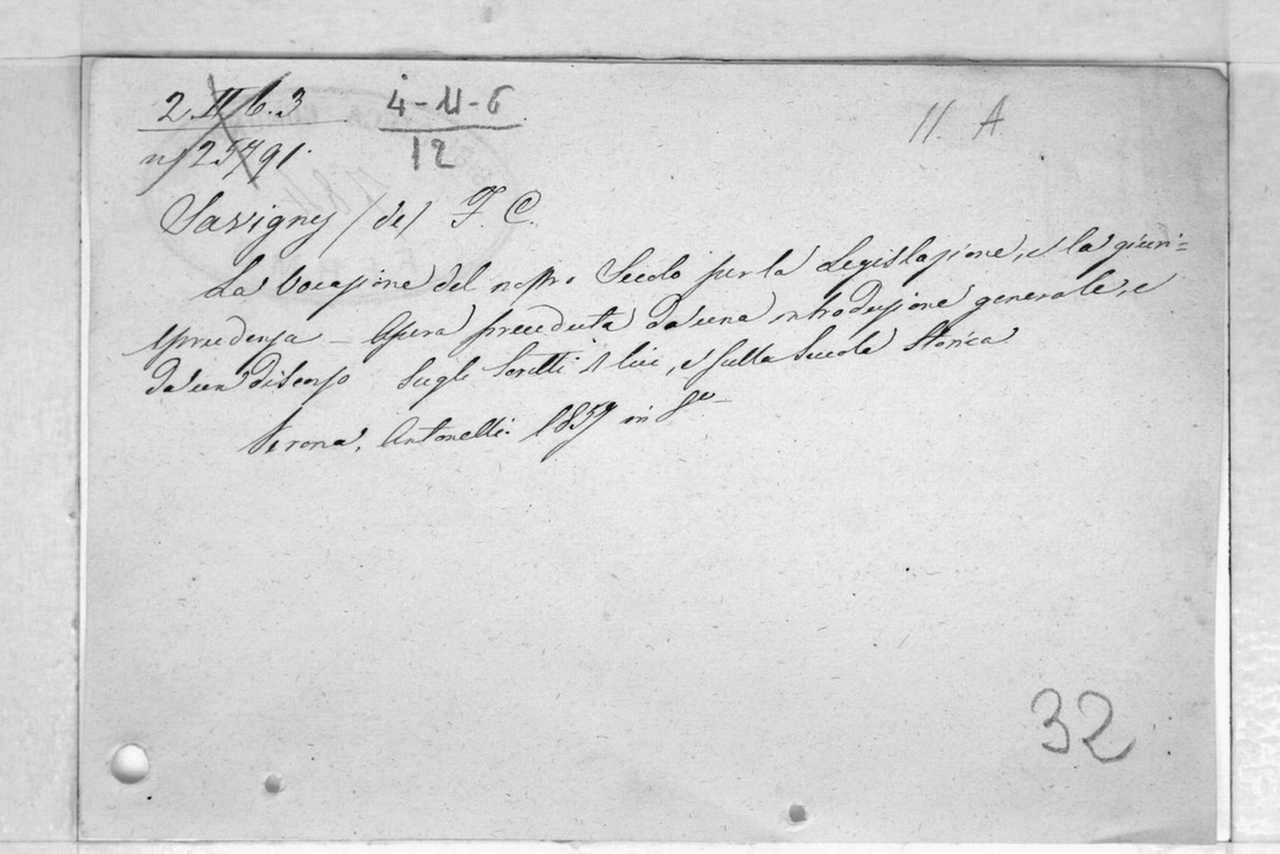 2. II b. 3
4-11-6
11. A
n/ 25791.
12
Savigny /de/ F. C.
La Vocazione del nostro Secolo per la Legislazione, e la giuri=
sprudenza – Opera preceduta da una introduzione generale, e
da un discorso sugli Scritti di lui, e sulla Scuola Storica
Verona, Antonelli. 1857 in 8º
32